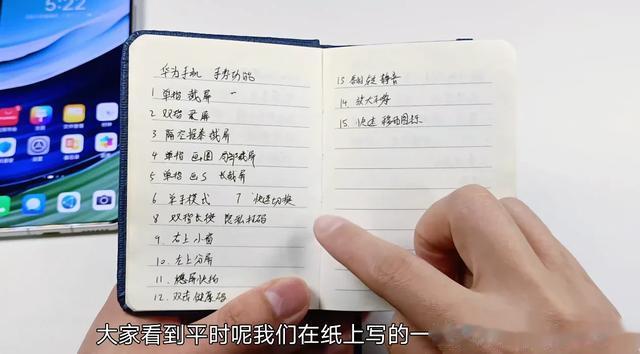 5:22
华为手机 手势功能
1 单指 截屏
2 双指 录屏
3 隔空抓拳 截屏
4 单指 画圈 局部截屏
5 单指 画S 长截屏
6 单手模式 7 快速切换
8 双指长按 隐私扫码
9. 右上小窗
10. 左上分屏
11. 熄屏快拍
12. 双击健康码
13 翻转 静音
14. 放大不了
15. 快速 移动图标
大家看到平时呢我们在纸上写的一